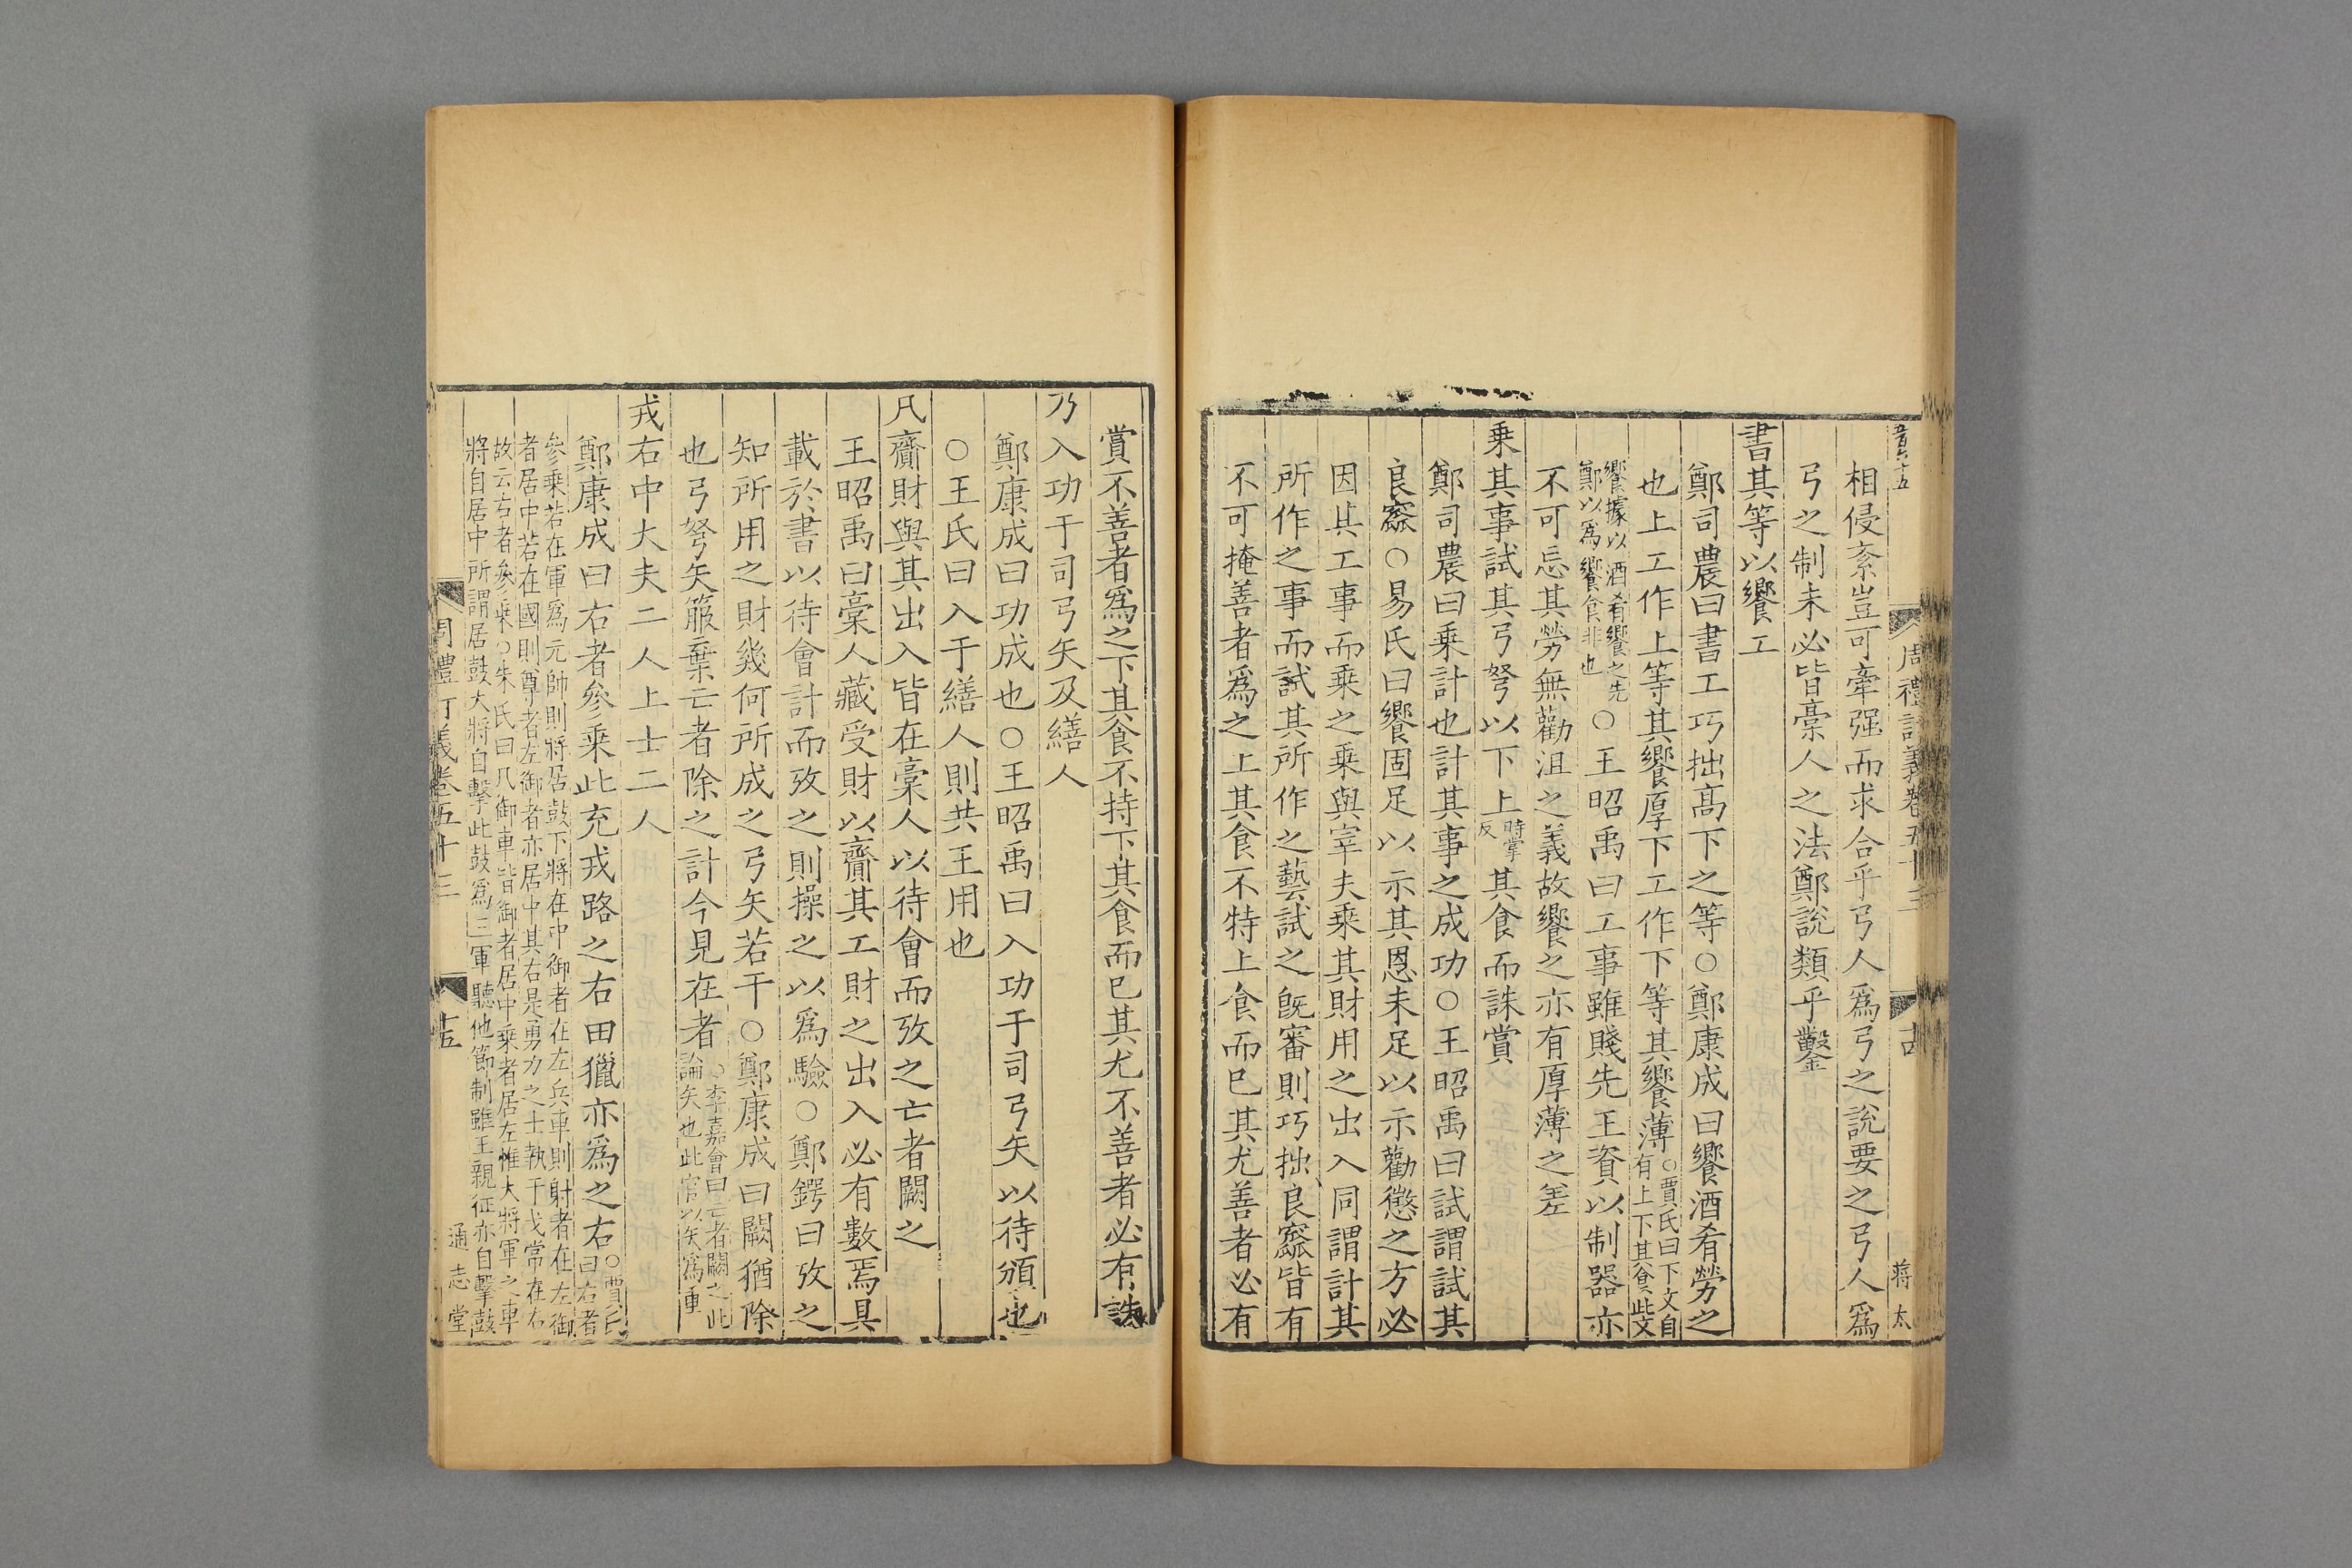 周禮訂義卷五十三
十四
蔣太
相侵紊豈可牽强而求合乎弓人爲弓之說要之弓人爲
弓之制未必皆稾人之法鄭說類乎鑿
書其等以饗工
鄭司農曰書工巧拙高下之等○鄭康成曰饗酒肴勞之
也上工作上等其饗厚下工作下等其饗薄○賈氏曰下文自有上下其食此文
饗據以酒肴饗之先鄭以爲饗食非也○王昭禹曰工事雖賤先王資以制器亦
不可忘其勞無勸沮之義故饗之亦有厚薄之差
乗其事試其弓弩以下上時掌反其食而誅賞
鄭司農曰乗計也計其事之成功○王昭禹曰試謂試其
良窳○易氏曰饗固足以示其恩未足以示勸懲之方必
因其工事而乗之乗與宰夫乗其財用之出入同謂計其
所作之事而試其所作之藝試之旣審則巧拙良窳皆有
不可掩善者爲之上其食不特上食而已其尤善者必有
賞不善者爲之下其食不持下其食而已其尤不善者必有誅
乃入功于司弓矢及繕人
鄭康成曰功成也○王昭禹曰入功于司弓矢以待頒也
○王氏曰入于繕人則共王用也
凡齎財與其出入皆在稾人以待會而攷之亡者闕之
王昭禹曰稾人藏受財以齎其工財之出入必有數焉具
載於書以待會計而攷之則操之以爲驗○鄭鍔曰攷之
知所用之財幾何所成之弓矢若干○鄭康成曰闕猶除
也弓弩矢箙棄亡者除之計今見在者○李嘉會曰亡者闕之此論矢也此官以矢爲重
戎右中大夫二人上士二人
鄭康成曰右者參乗此充戎路之右田獵亦爲之右○賈氏曰右者
參乗若在軍爲元帥則將居鼓下將在中御者在左兵車則射者在左御
者居中若在國則尊者左御者亦居中其右是勇力之士執干戈常在右
故云右者參乗○朱氏曰凡御車皆御者居中乗者居左惟大將軍之車
將自居中所謂居鼓大將自擊此鼓爲三軍聽他節制雖王親征亦自擊鼓
周禮訂義卷五十三
十五
通志堂